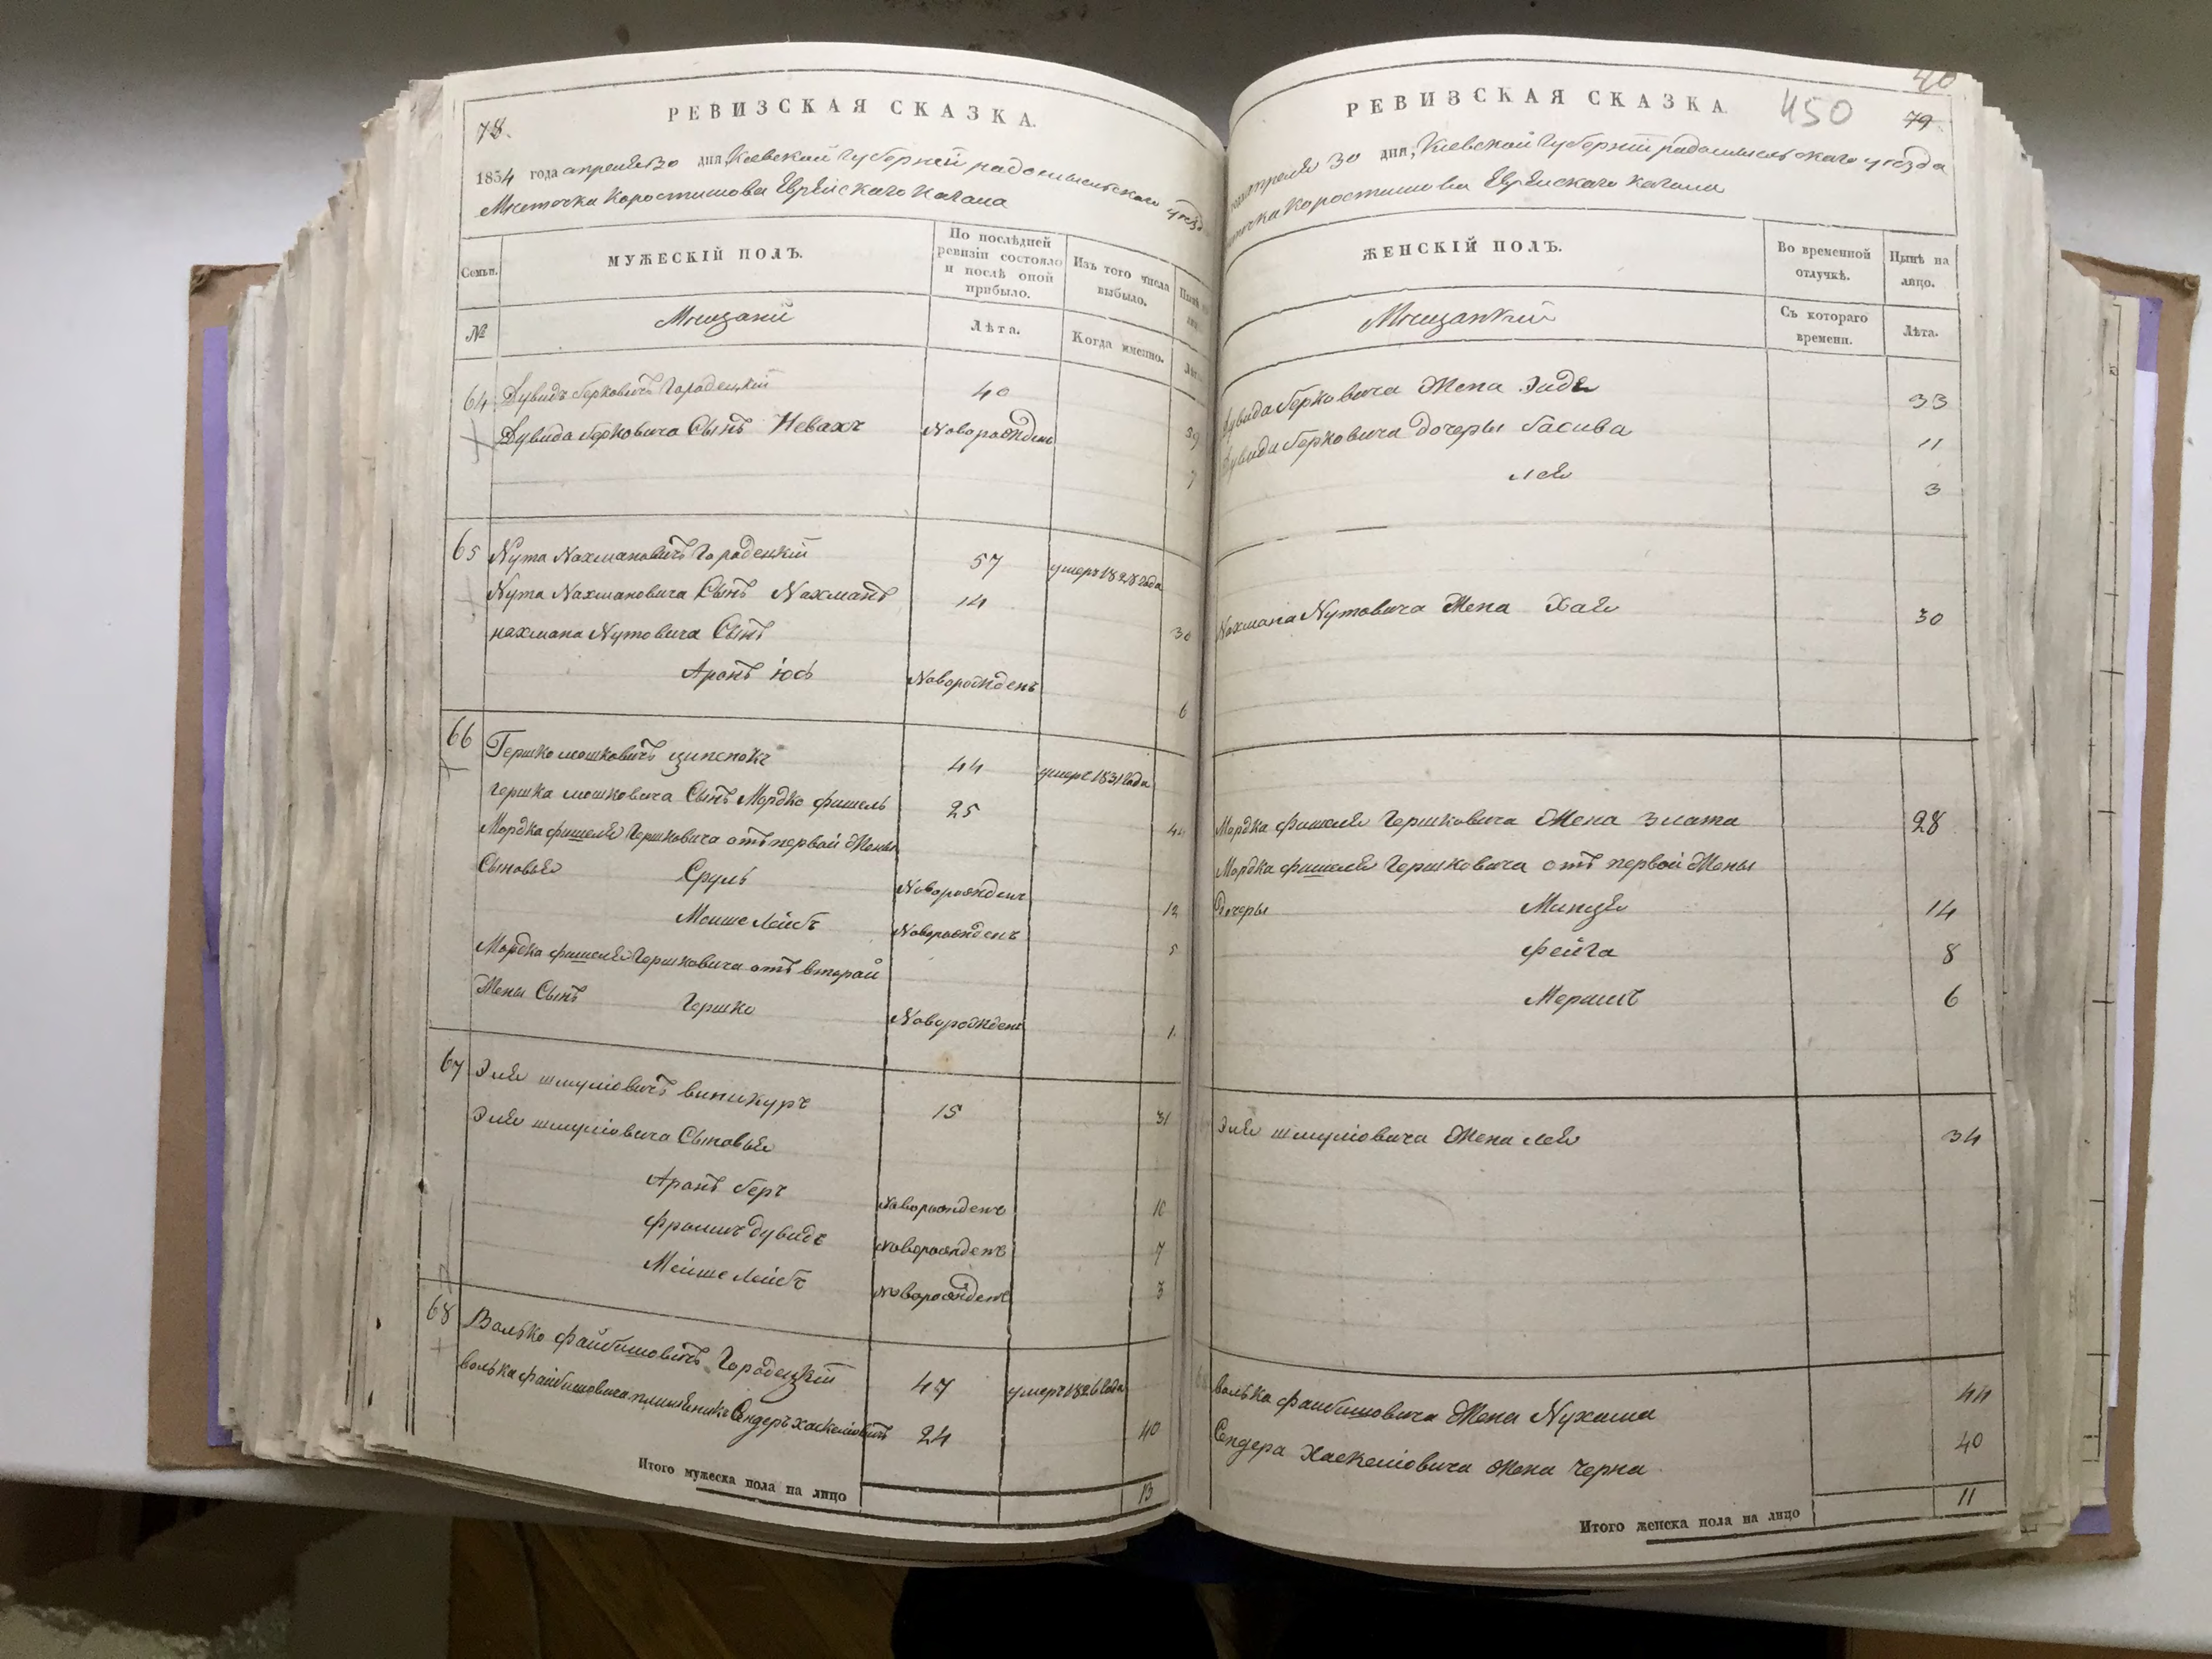 78.
РЕВИЗСКАЯ СКАЗКА.
1854 года апреля 30 дня, Киевской Губерній радомысльского уезд
Местечка Коростишова Еврейскаго Кагала
Семьи.
МУЖЕСКІЙ ПОЛЪ.
По послѣдней ревизіи состояло и послѣ оной прибыло.
Изъ того числа выбыло.
№
Мещани
Лѣта.
Когда именно.
64 Дувидъ берковичъ Городецкій 40 39
Дувида берковича Сынъ Невахъ Новорожденъ 7
65 Нута Нахмановичъ Городецкій 57 умеръ 1828 года
Нута Нахмановича Сынъ Нахманъ 14 30
нахмана Нутовича Сынъ
Аронъ іось Новорожденъ 6
66 Гершко мошковичъ 44 умеръ 1831 года
гершка мошковича Сынъ Мордко фишель 25 44
Мордка фишеля Гершковича отъ первой Жены
Сыновья Сруль Новорожденъ 12
Моише Лейбъ Новорожденъ 5
Мордка фишеля Гершковича отъ второй
Жены Сынъ Гершко Новорожденъ 1
67 Эля шмуліовичъ виникуръ 15 31
Эля шмуліовича Сыновья
Аронъ беръ Новорожденъ 10
фроимъ дувидъ Новорожденъ 7
Мойше Лейбъ Новорожденъ 3
68 Волько файбишовичъ Городецкій 47 умеръ 1826 года
волька файбишовича племяникъ Сендеръ хаскеліовичъ 24 40
Итого мужеска пола на лицо 13
40
450
79.
РЕВИЗСКАЯ СКАЗКА.
апреля 30 дня, Киевской Губерній радомысльского уезда
Коростишова Еврейскаго Кагала
ЖЕНСКІЙ ПОЛЪ.
Во временной отлучкѣ.
Нынѣ на лицо.
Мещанкій
Съ котораго времени.
Лѣта.
Дувида берковича Жена Энд 33
Дувида берковича дочеры басива 11
лея 3
Нахмана Нутовича Жена Хая 30
Мордка фишеля Гершковича Жена Злата 28
Мордка фишеля Гершковича отъ первой Жены
дочеры Минця 14
Фейга 8
Мериамъ 6
Эля шмуліовича Жена лея 34
волька файбишовича Жена Нухама 44
Сендера Хаскеліовича жена Черна 40
Итого женска пола на лицо 11